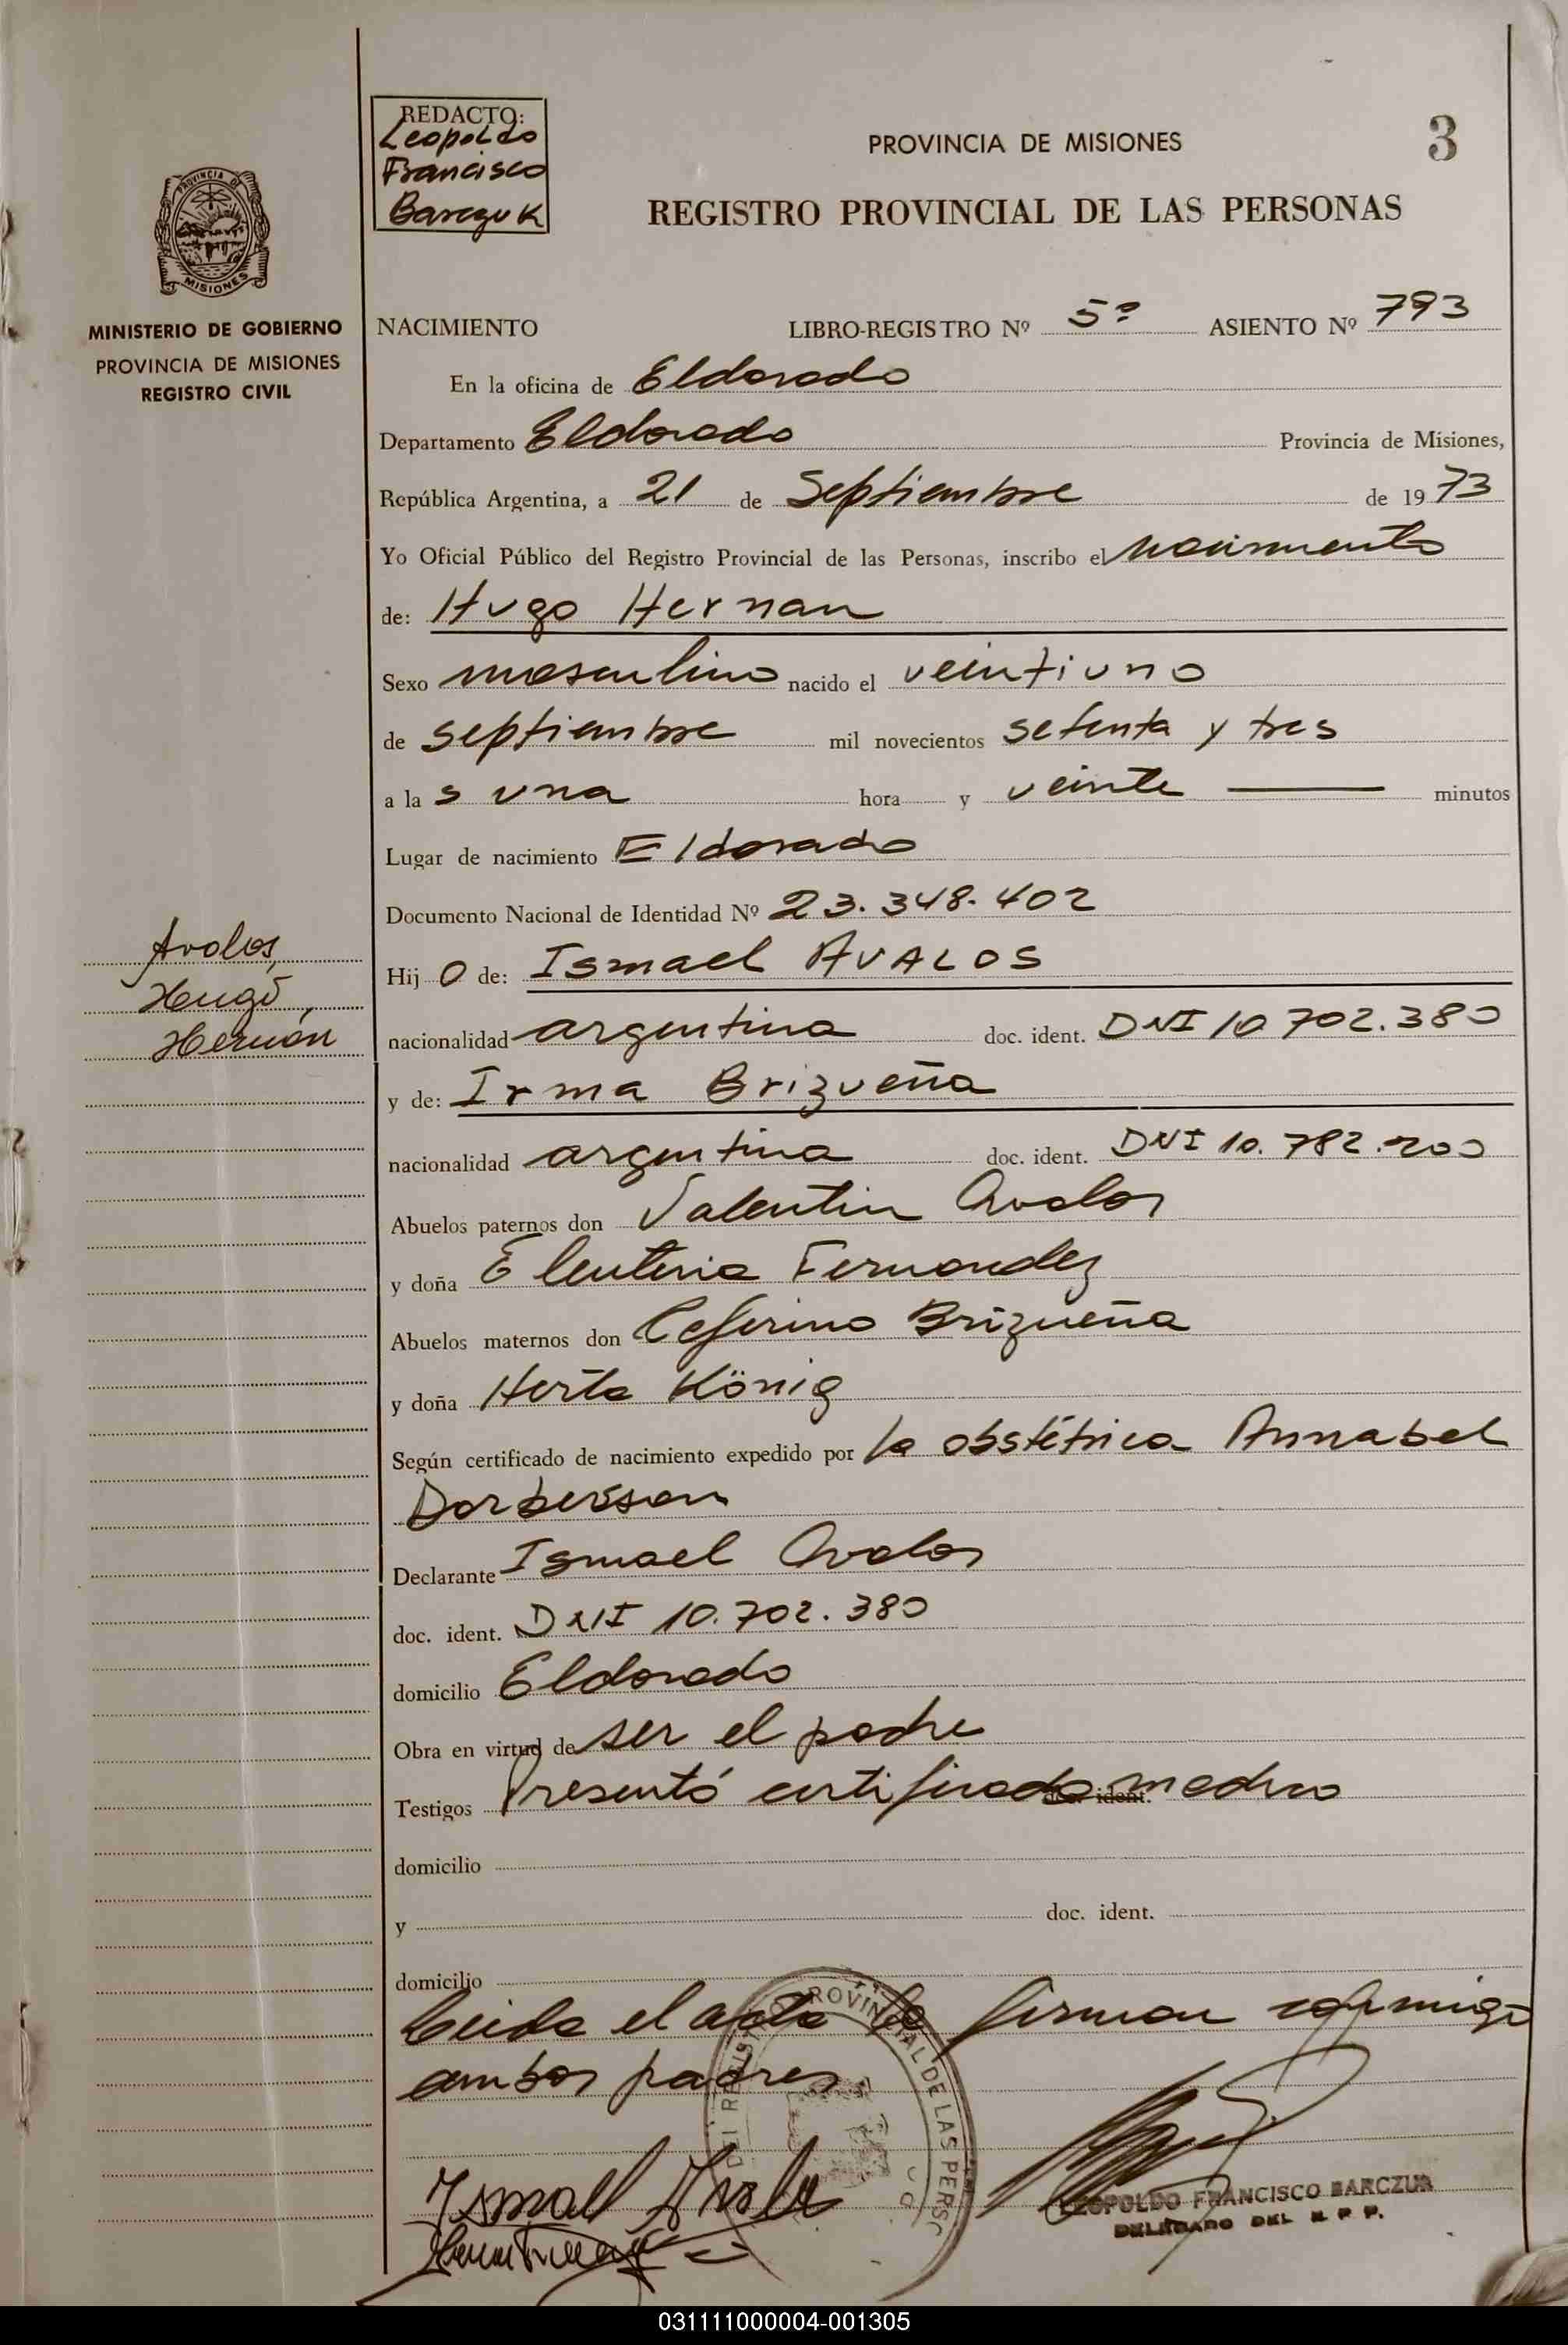 REDACTO:
Leopoldo
Francisco
Barczuk
PROVINCIA DE MISIONES
3
REGISTRO PROVINCIAL DE LAS PERSONAS
PROVINCIA DE
MISIONES
MINISTERIO DE GOBIERNO
PROVINCIA DE MISIONES
REGISTRO CIVIL
NACIMIENTO LIBRO-REGISTRO Nº 5º ASIENTO Nº 793
En la oficina de Eldorado
Departamento Eldorado Provincia de Misiones,
República Argentina, a 21 de Septiembre de 1973
Yo Oficial Público del Registro Provincial de las Personas, inscribo el nacimiento
de: Hugo Hernan
Sexo masculino nacido el veintiuno
de septiembre mil novecientos setenta y tres
a las una hora y veinte minutos
Lugar de nacimiento Eldorado
Documento Nacional de Identidad Nº 23.348.402
Avalos,
Hugo,
Hernán
Hijo de: Ismael AVALOS
nacionalidad argentina doc. ident. DNI 10 702.380
y de: Irma Brizueña
nacionalidad argentina doc. ident. DNI 10.782.200
Abuelos paternos don Valentin Avalos
y doña Eleuteria Fernandez
Abuelos maternos don Ceferino Brizueña
y doña Herta König
Según certificado de nacimiento expedido por la obstétrica Annabel
Declarante Ismael Avalos
doc. ident. DNI 10.702.380
domicilio Eldorado
Obra en virtud de ser el padre
Testigos Presentó certificado medico doc. ident.
domicilio
y doc. ident.
domicilio
Leida el acta la firman conmigo
ambos padres
DEL REGISTRO PROVINCIAL DE LAS PERSO
Ismael Avalos
LEOPOLDO FRANCISCO BARCZUK
DELEGADO DEL R P P.
031111000004-001305